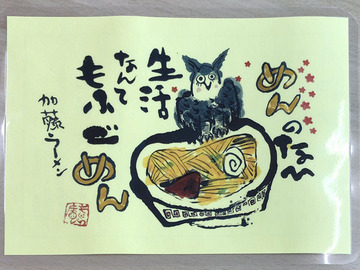 めんのな〜い
生活
なんて
もうごめん
加藤ラーメン